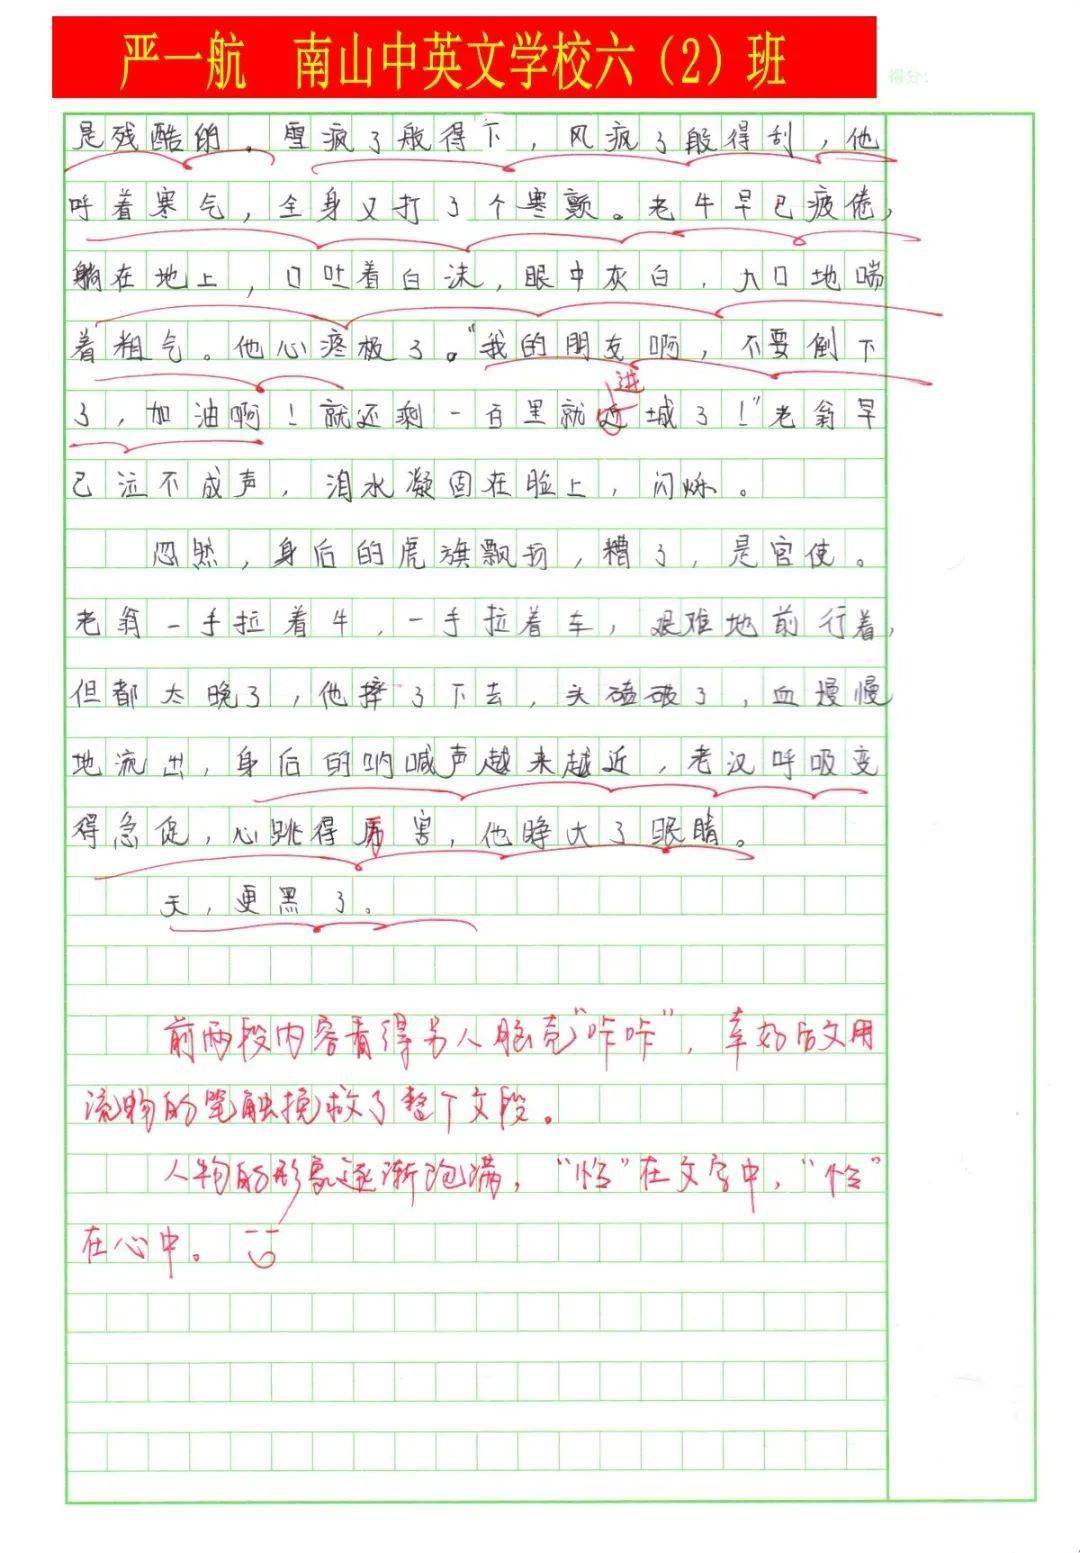 严一航 南山中英文学校六（2）班
得分：
是残酷的。雪疯了般得下，风疯了般得刮，他
呼着寒气，全身又打了个寒颤。老牛早已疲倦，
躺在地上，口吐着白沫，眼中灰白，大口地喘
着粗气。他心疼极了。“我的朋友啊，不要倒下
进
了，加油啊！就还剩一百里就近城了！”老翁早
已泣不成声，泪水凝固在脸上，闪烁。
忽然，身后的虎旗飘扬，糟了，是官使。
老翁一手拉着牛，一手拉着车，艰难地前行着，
但都太晚了，他摔了下去，头磕破了，血慢慢
地流出，身后的呐喊声越来越近，老汉呼吸变
得急促，心跳得厉害，他睁大了眼睛。
天，更黑了。
前两段内容看得另人脑壳“咔咔”，幸好后文用
流畅的笔触挽救了整个文段。
人物的形象逐渐饱满，“恰”在文字中，“恰”
在心中。